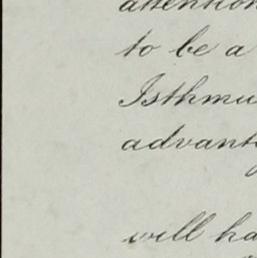 attention
to be a
Isthmu
advant
will ha